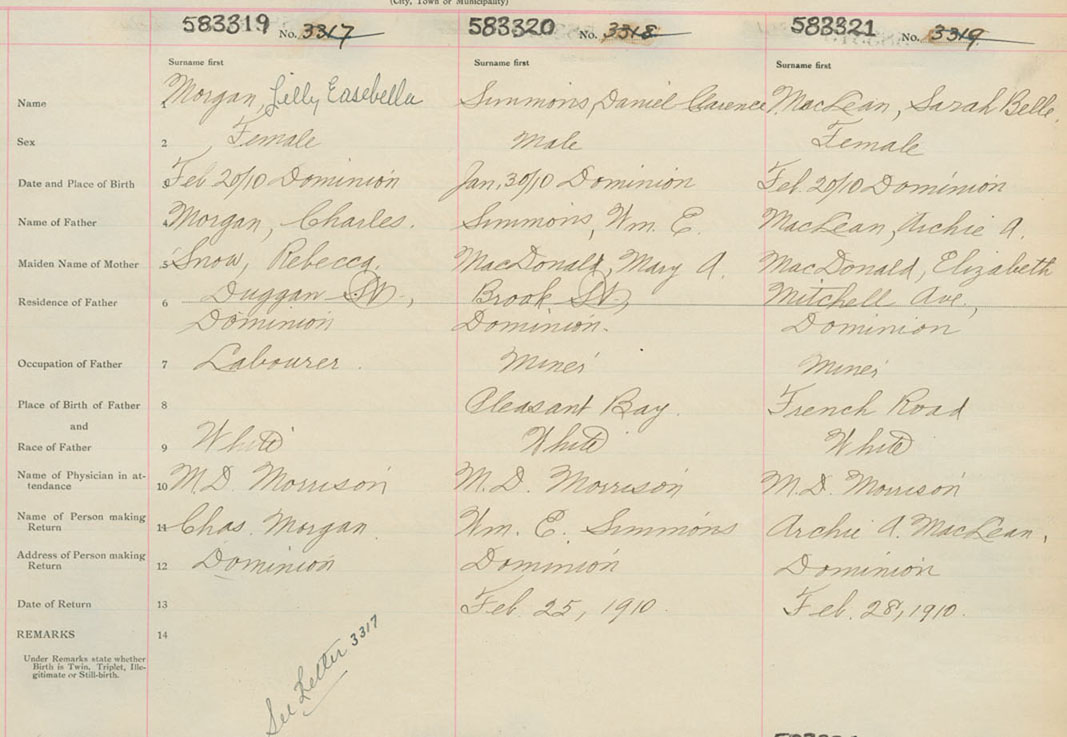 (City, Town or Municipality)
583319 No. 3317 583320 No. 3318 583321 No. 3319
Surname first Surname first Surname first
Name 1 Morgan, Lilly Easebella Simmons, Daniel Clarence MacLean, Sarah Belle.
Sex 2 Female Male Female
Date and Place of Birth 3 Feb 20/10 Dominion Jan, 30/10 Dominion Feb. 20/10 Dominion
Name of Father 4 Morgan, Charles. Simmons, Wm. E. MacLean, Archie A.
Maiden Name of Mother 5 Snow, Rebecca, MacDonald, Mary A. MacDonald, Elizabeth
Residence of Father 6 Duggan St., Brook St, Mitchell Ave,
Dominion Dominion. Dominion
Occupation of Father 7 Labourer. Miner Miner
Place of Birth of Father 8 Pleasant Bay. French Road
and
Race of Father 9 White White White
Name of Physician in at-
tendance 10 M.D. Morrison M.D. Morrison M.D. Morrison
Name of Person making
Return 11 Chas. Morgan. Wm. E. Simmons Archie A. MacLean.
Address of Person making
Return 12 Dominion Dominion Dominion
Date of Return 13 Feb. 25, 1910. Feb. 28, 1910.
REMARKS 14
Under Remarks state whether
Birth is Twin, Triplet, Ille-
gitimate or Still-birth.
See Letter 3317